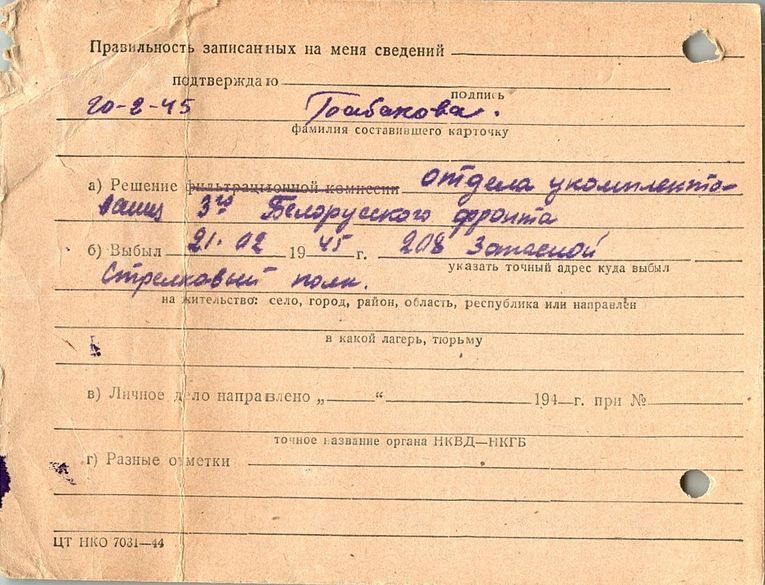 Правильность записанных на меня сведений
подтверждаю
подпись
20-2-45 Грабакова.
фамилия составившего карточку
а) Решение фильтрационной комиссии отдела укомплекто-
вания 3го Белорусского фронта
б) Выбыл 21.02 1945 г. 208 Запасной
указать точный адрес куда выбыл
Стрелковый полк.
на жительство: село, город, район, область, республика или направлен
в какой лагерь, тюрьму
в) Личное дело направлено „ “ 194 г. при №
точное название органа НКВД—НКГБ
г) Разные отметки
ЦТ НКО 7031—44